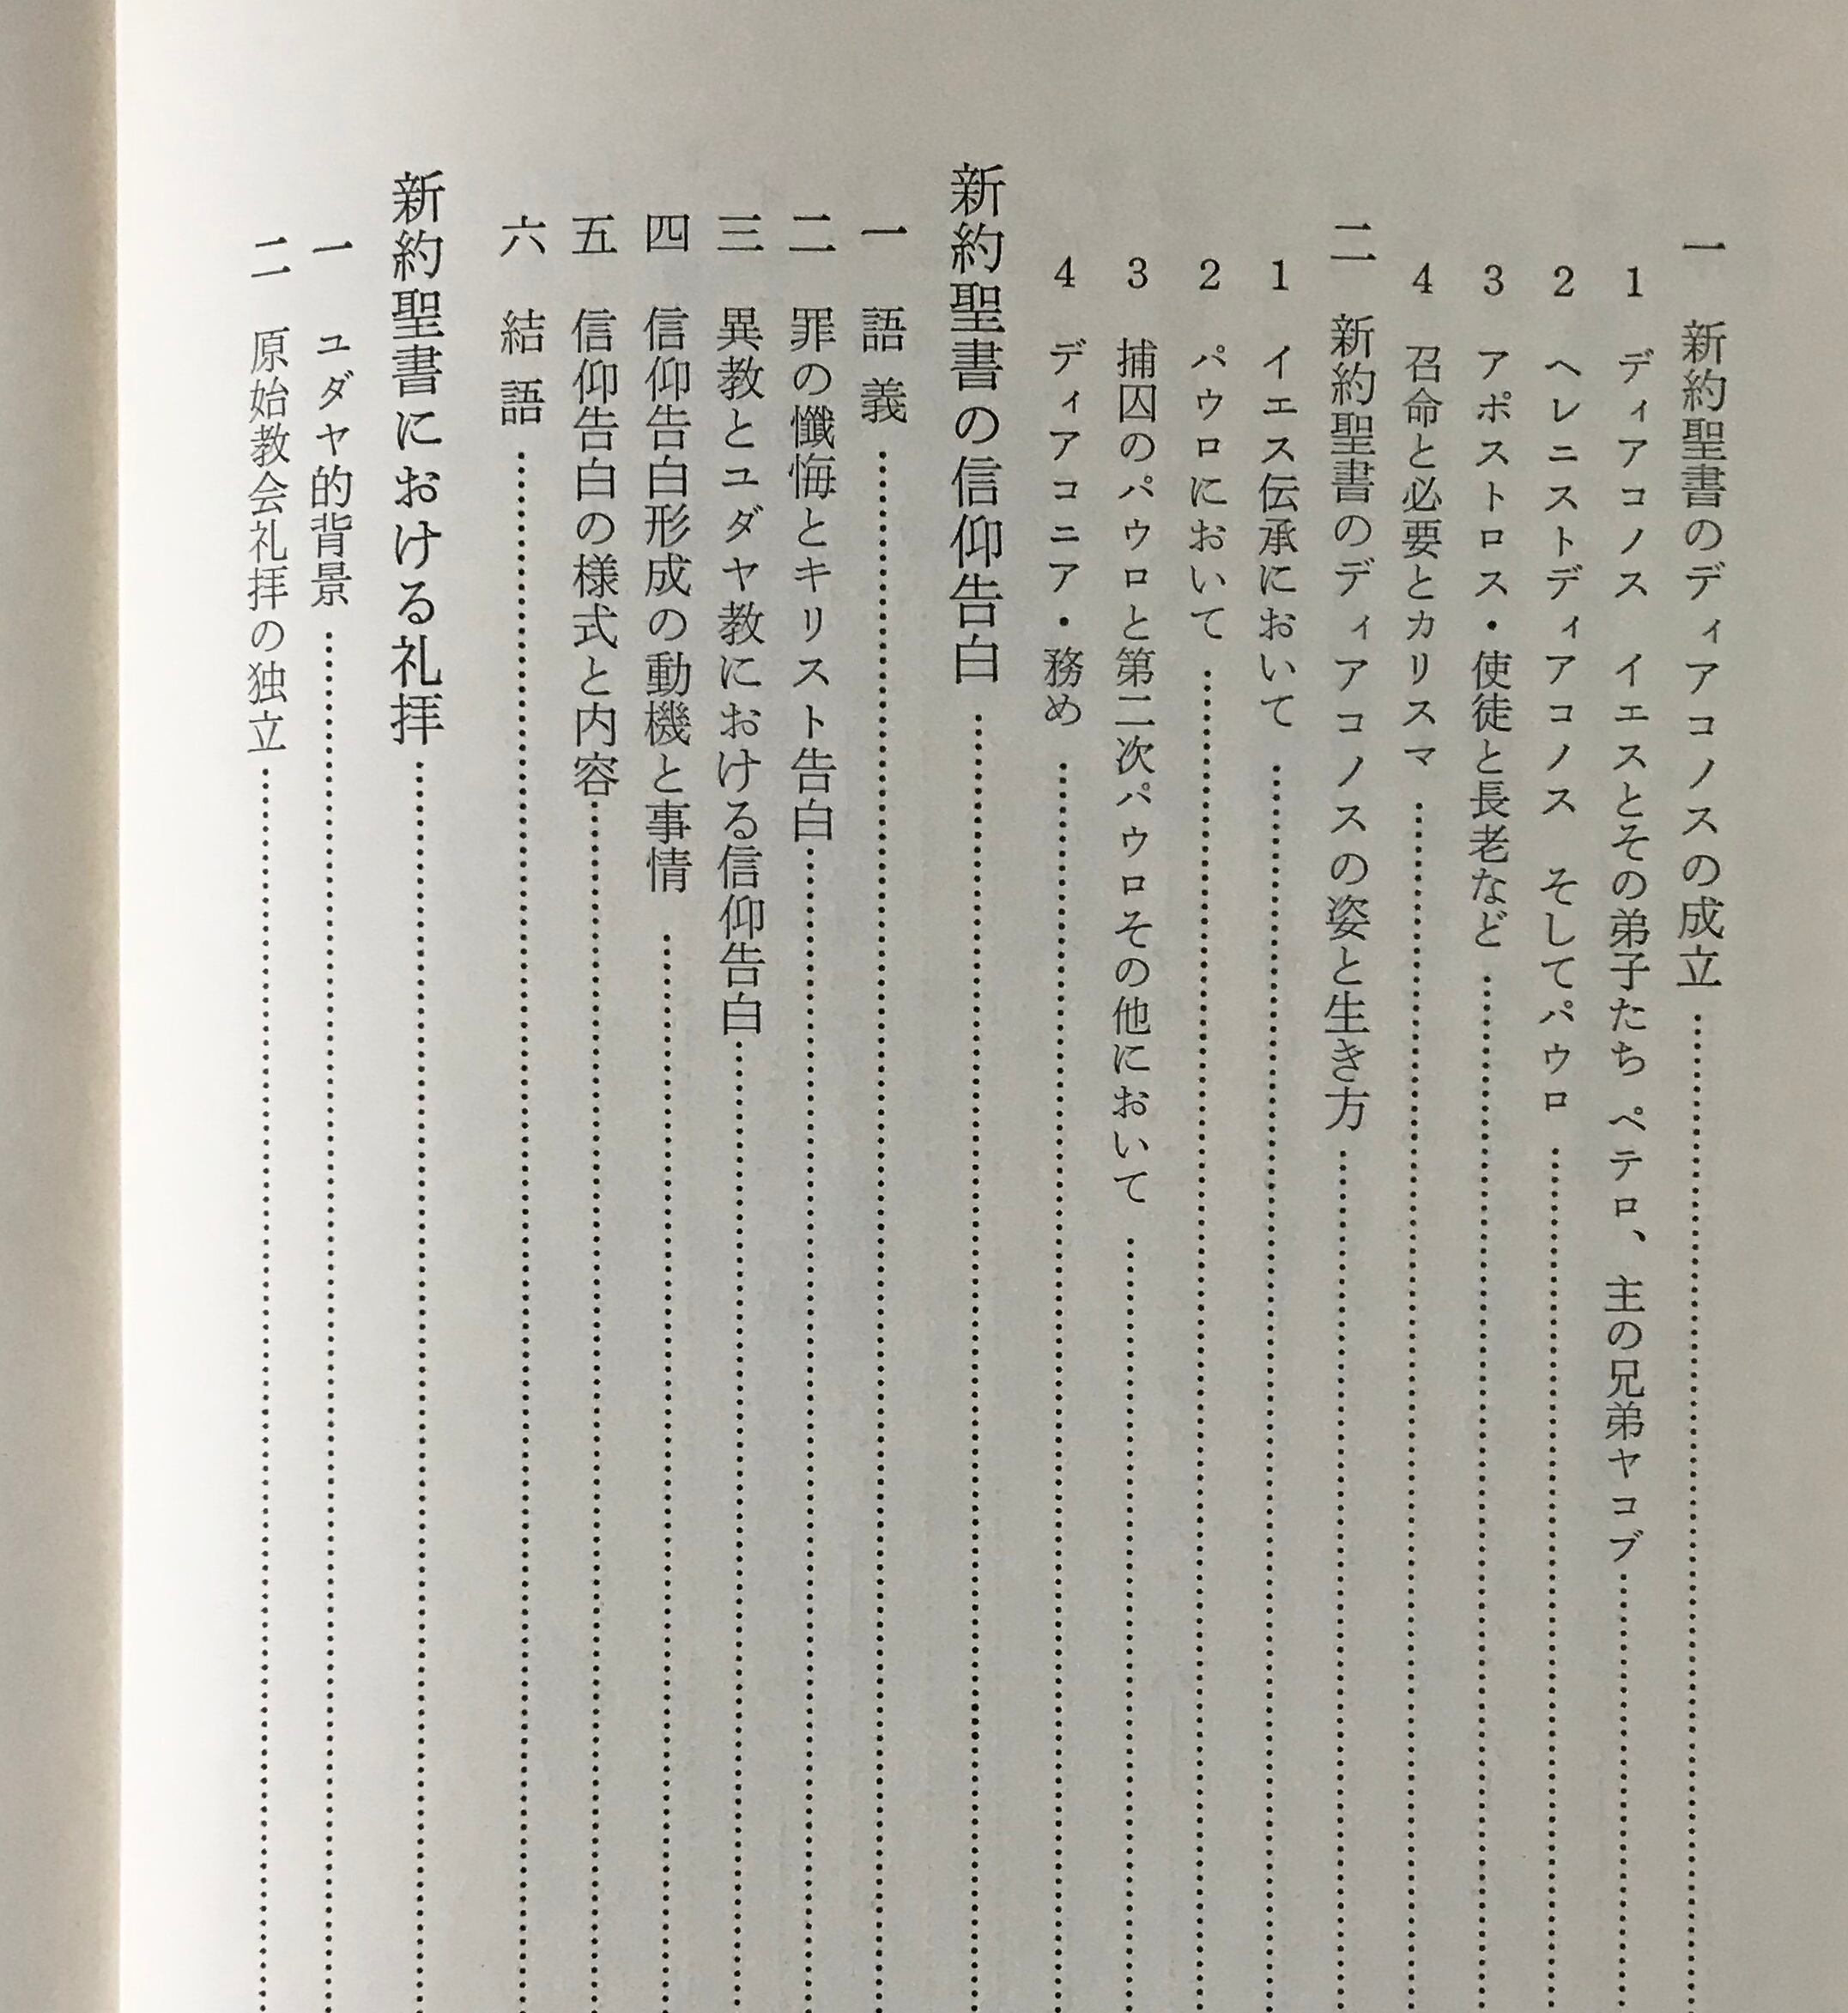 一　新約聖書のディアコノスの成立
1　ディアコノス　イエスとその弟子たち　ペテロ、主の兄弟ヤコブ
2　ヘレニストディアコノス　そしてパウロ
3　アポストロス・使徒と長老など
4　召命と必要とカリスマ
二　新約聖書のディアコノスの姿と生き方
1　イエス伝承において
2　パウロにおいて
3　捕囚のパウロと第二次パウロその他において
4　ディアコニア・務め
新約聖書の信仰告白
一　語義
二　罪の懺悔とキリスト告白
三　異教とユダヤ教における信仰告白
四　信仰告白形成の動機と事情
五　信仰告白の様式と内容
六　結語
新約聖書における礼拝
一　ユダヤ的背景
二　原始教会礼拝の独立